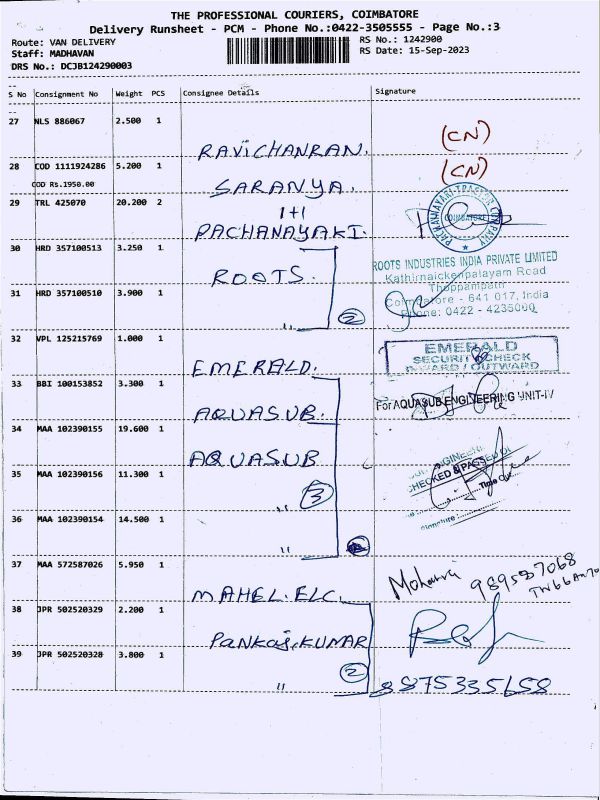 THE PROFESSIONAL COURIERS, COIMBATORE
Delivery Runsheet - PCM - Phone No.:0422-3505555 - Page No.:3
Route: VAN DELIVERY RS No.: 1242900
Staff: MADHAVAN RS Date: 15-Sep-2023
DRS No.: DCJB124290003
S No Consignment No Weight PCS Consignee Details Signature
27 NLS 886067 2.500 1
RAVICHANRAN. (CN)
28 COD 1111924286 5.200 1 (CN)
COD Rs.1950.00 SARANYA.
29 TRL 425070 20.200 2
1+1 COIMBATORE
PACHANAYAKI.
30 HRD 357100513 3.250 1
ROOTS INDUSTRIES INDIA PRIVATE LIMITED
ROOTS. Kathirnaickenpalayam Road
Thoppampatti
31 HRD 357100510 3.900 1
Coimbatore - 641 017, India
" 2 Phone: 0422 - 4235000
32 VPL 125215769 1.000 1
EMERALD
SECURITY CHECK
EMERALD. INWARD / OUTWARD
33 BBI 100153852 3.300 1
AQUASUB. For AQUASUB ENGINEERING UNIT-IV
34 MAA 102390155 19.600 1
AQUASUB CHECKED & PASSED
35 MAA 102390156 11.300 1
3
36 MAA 102390154 14.500 1
" Signature
37 MAA 572587026 5.950 1
MAHEL. ELC.
38 JPR 502520329 2.200 1
Pankaj.KUMAR
39 JPR 502520328 3.800 1
2
" 8875335658